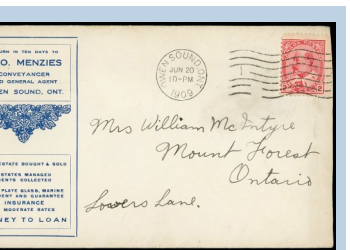 URN IN TEN DAYS TO
O. MENZIES
CONVEYANCER
D GENERAL AGENT
EN SOUND, ONT.
ESTATE BOUGHT & SOLD
STATES MANAGED
ENTS COLLECTED
PLATE GLASS, MARINE
DENT AND GUARANTEE
INSURANCE
MODERATE RATES
NEY TO LOAN
OWEN SOUND, ONT.
JUN 20
10-PM
1909
2
Mrs William McIntyre
Mount Forest
Ontario
Lane.